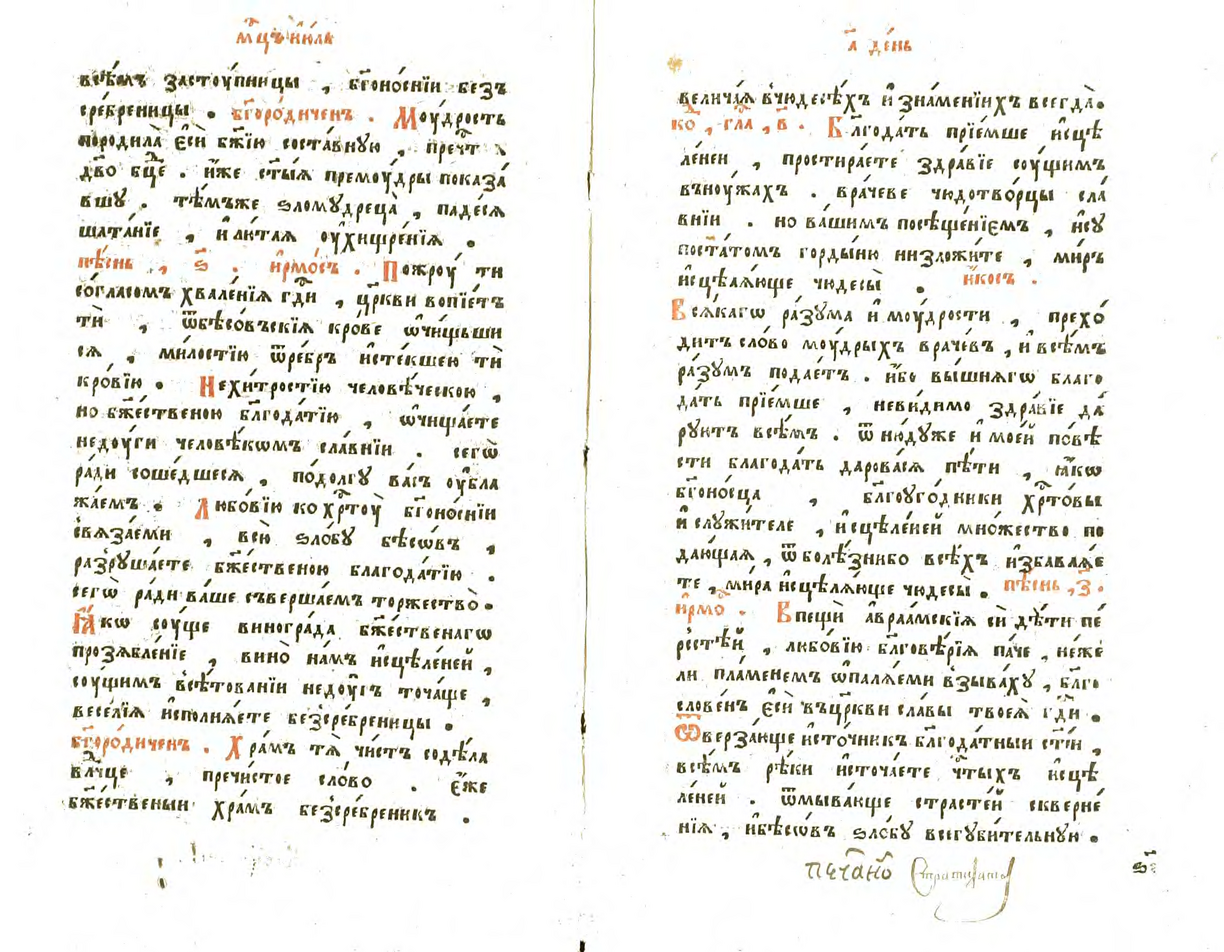 мⷭ҇цъ і҆ю́ль
всѣ́мъ застоу́пницы , бг҃оно́снїи без̾
сре́бреницы . бг҃оро́диченъ . Моу́дрость
породила̀ є҆сѝ бж҃їю соста́вную , пречⷭ҇таѧ
дв҃о бц҃е . и҆́же ст҃ы́ѧ премоу́дры показа́
вшу . тѣ́мъже ѕлому́дреца̀ , паде́сѧ
шата́нїе , и҆ лю́таѧ ѹ҆хищре́нїѧ .
пѣ́снь , ѕ҃ . і҆рмо́съ . Пожроу́ ти
со́гласомъ хвале́нїѧ гд҃и , цр҃кви вопїе́тъ
тѝ , ѿбѣсо́въскїѧ кро́ве ѡ҆чи́щьши
сѧ , ми́лостїю ѿре́бръ и҆сте́кшею тѝ
кро́вїю . Нехи́тростїю человѣ́ческою ,
но бж҃е́ственою бл҃года́тїю , ѡ҆чища́ете
недоу́ги человѣ́кѡмъ сла́внїи . сегѡ̀
ра́ди соше́дшесѧ , по́долгу ва́съ ѹ҆бла
жа́емъ . Любо́вїю ко хрⷭ҇тоу̀ бг҃оно́снїи
свѧза́еми , всю̀ ѕло́бу бѣсѡ́въ ,
разруша́ете бж҃е́ственою благода́тїю .
сегѡ̀ ра́ди ва́ше съверша́емъ торжество̀ .
Ꙗ҆́кѡ соу́ще виногра́да бж҃е́ственагѡ
прозѧбле́нїе , вино̀ на́мъ и҆сцѣле́ней ,
соу́щимъ всѣ́тованїи недоу́гъ точа́ще ,
весе́лїѧ и҆сполнѧ́ете безсре́бреницы .
бг҃оро́диченъ . Хра́мъ тѧ̀ чи́стъ содѣ́ла
влⷣчце , пречи́стое сло́во . є҆́же
бж҃е́ственыи хра́мъ безсре́бреникъ .
а҃ де́нь
велича́ѧ вчюдесѣ́хъ и҆ зна́менїихъ всегда̀ .
ко , гла , в҃ . Бл҃года́ть прїе́мше и҆сцѣ
ле́неи , простира́ете здра́вїе соу́щимъ
въноу́жахъ . вра́чеве чюдотво́рцы сла́
внїи . но ва́шимъ посѣще́нїемъ , и҆су
поста́томъ горды́ню низложи́те , ми́ръ
и҆сцѣлѧ́юще чюдесы̀ . и҆́косъ .
Всѧ́кагѡ ра́зума и҆ моу́дрости , прехо́
дитъ сло́во моу́дрыхъ враче́въ , и҆ всѣ́мъ
ра́зумъ подае́тъ . и҆́бо вы́шнѧгѡ благо
да́ть прїе́мше , неви́димо здра́вїе да́
руютъ всѣ́мъ . ѿ ню́дуже и҆ мое́й по́вѣ
сти благода́ть дарова́сѧ пѣ́ти , ꙗ҆́кѡ
бг҃оно́сца , бл҃гоуго́дники хрⷭ҇то́вы
и҆ служи́теле , и҆сцѣле́ней мно́жество по
даю́щаѧ , ѿ болѣ́зни бо всѣ́хъ и҆збавлѧ́е
те , ми́ра и҆сцѣлѧ́юще чюдесы̀ . пѣ́снь , з҃ .
і҆рмо́ . Впещѝ а҆враа́мскїѧ сѝ дѣ́ти пе́
рсстѣ́й , любо́вїю бл҃говѣ́рїѧ па́че , не́же
ли пла́менемъ ѡ҆палѧ́еми взыва́ху , бл҃го
слове́нъ є҆сѝ въцр҃кви сла́вы твоеѧ̀ гд҃и .
Ѿверза́юще и҆сто́чникъ бл҃года́тныи ст҃і́и ,
всѣ́мъ рѣ́ки и҆сточа́ете чⷭ҇тыхъ и҆сцѣ
ле́ней . ѿмыва́юще страсте́й скверне́
нїѧ , и҆бѣсѡ́въ ѕло́бу всегуби́тельную .
печа́но
ѕ҃